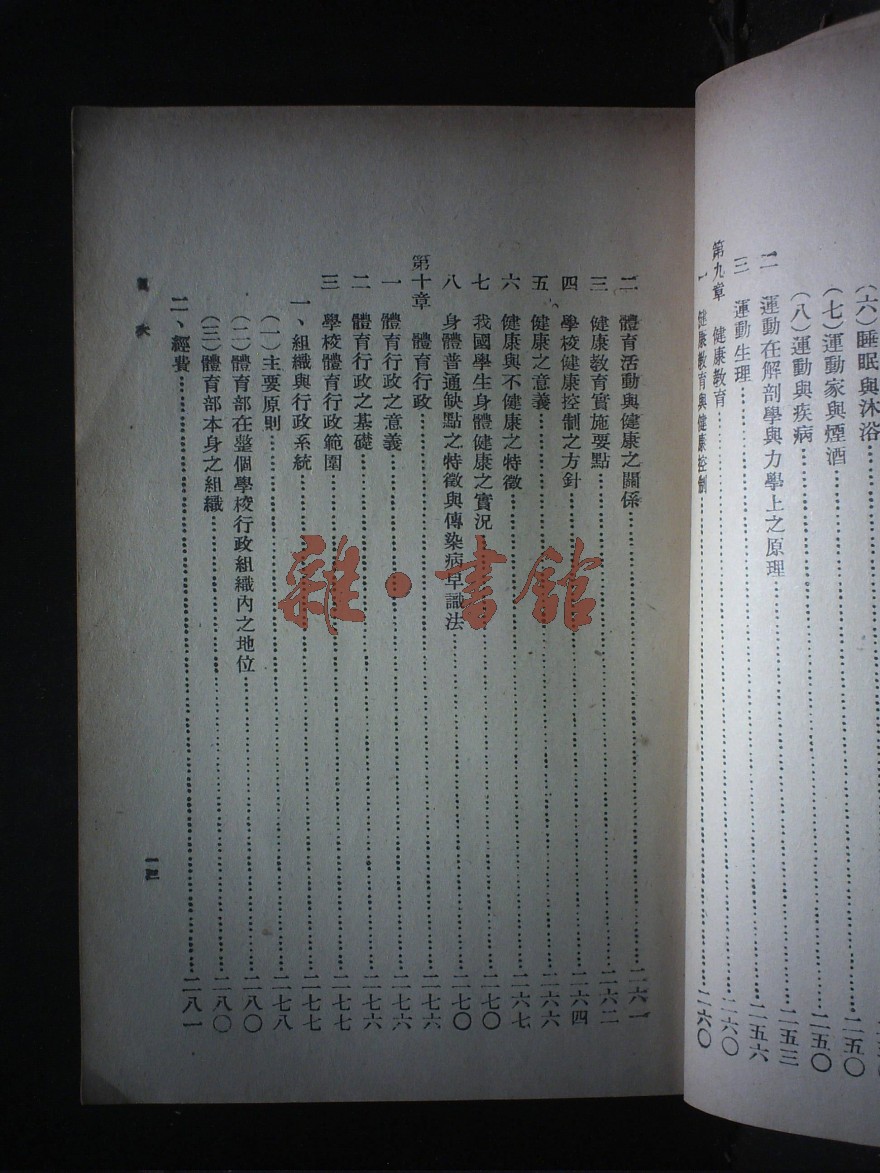 (六)睡眠與沐浴
(七)運動家與煙酒……二五〇
(八)運動與疾病……二五〇
二 運動在解剖學與力學上之原理……二五三
三 運動生理……二五六
第九章 健康教育……二六〇
一 健康教育與健康控制……二六〇
二 體育活動與健康之關係……二六一
三 健康教育實施要點……二六二
四 學校健康控制之方針……二六四
五 健康之意義……二六六
六 健康與不健康之特徵……二六七
七 我國學生身體健康之實況……二七〇
八 身體普通缺點之特徵與傳染病早識法……二七〇
第十章 體育行政……二七六
一 體育行政之意義……二七六
二 體育行政之基礎……二七六
三 學校體育行政範圍……二七七
一、組織與行政系統……二七七
(一)主要原則……二七八
(二)體育部在整個學校行政組織內之地位……二八〇
(三)體育部本身之組織……二八〇
二、經費……二八一
目次
雜·書館